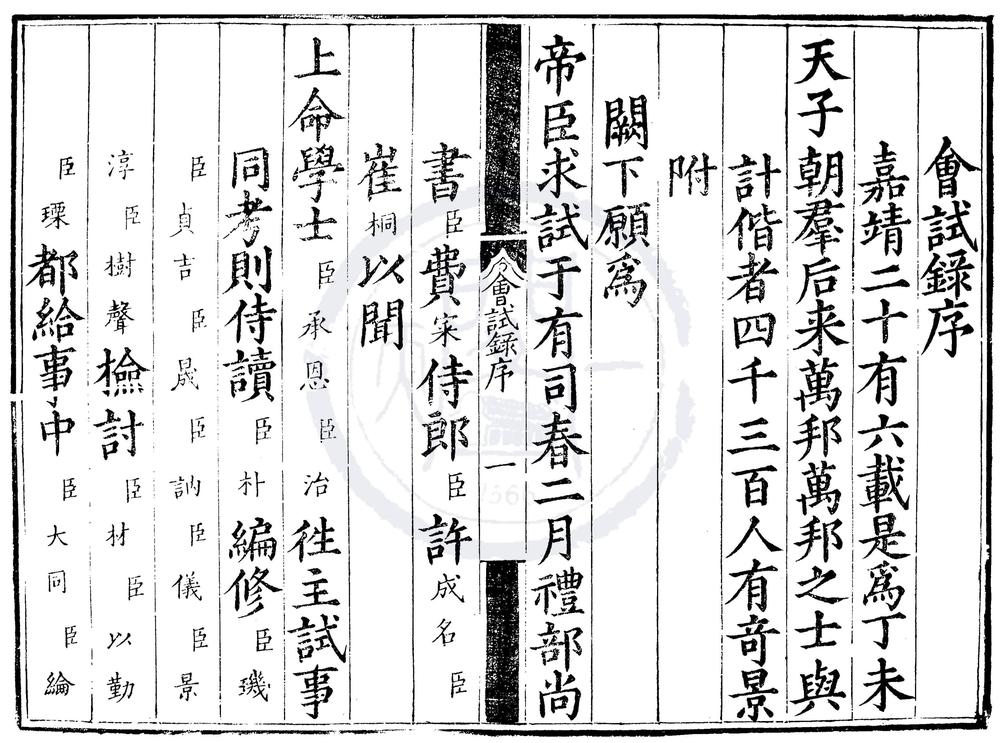 會試錄序
嘉靖二十有六載是爲丁未
天子朝羣后来萬邦萬邦之士與
計偕者四千三百人有竒景
附
闕下願爲
帝臣求試于有司春二月禮部尚
會試錄序 一
書臣費寀侍郎臣許成名臣
崔桐以聞
上命學士臣承恩臣治徃主試事
同考則侍讀臣朴編修臣璣
臣貞吉臣晟臣訥臣儀臣景
淳臣樹聲撿討臣材臣以勤
臣瑮都給事中臣大同臣綸